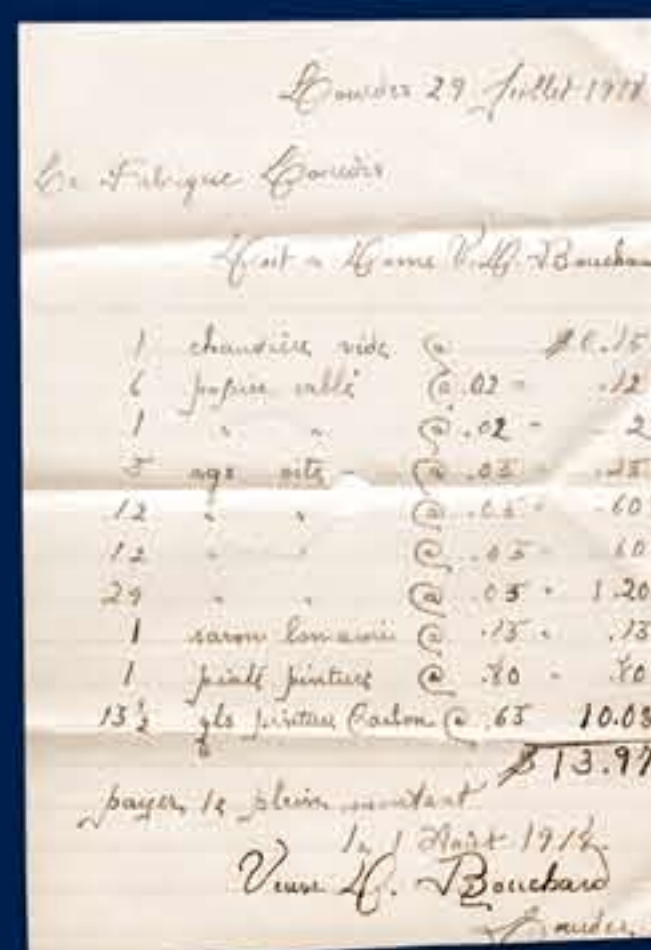 Lourdes 29 Juillet 1918
La Fabrique Lourdes
Doit a Dame V. D. Bouchard
1 chaudière vide @ $0.15
6 papier sablé @ .02 - .12
1 " " @ .02 - 2
5 ags vite - @ .05 - .25
12 " " @ .05 - .60
12 " " @ .05 - 60
29 " " @ .05 - 1.20
1 savon @ .15 - .15
1 pinture @ .80 - .80
13½ gls pinture @ .65 10.08
$13.97
payer le plein montant
le 1 Août 1918
Veuve D. Bouchard
Lourdes